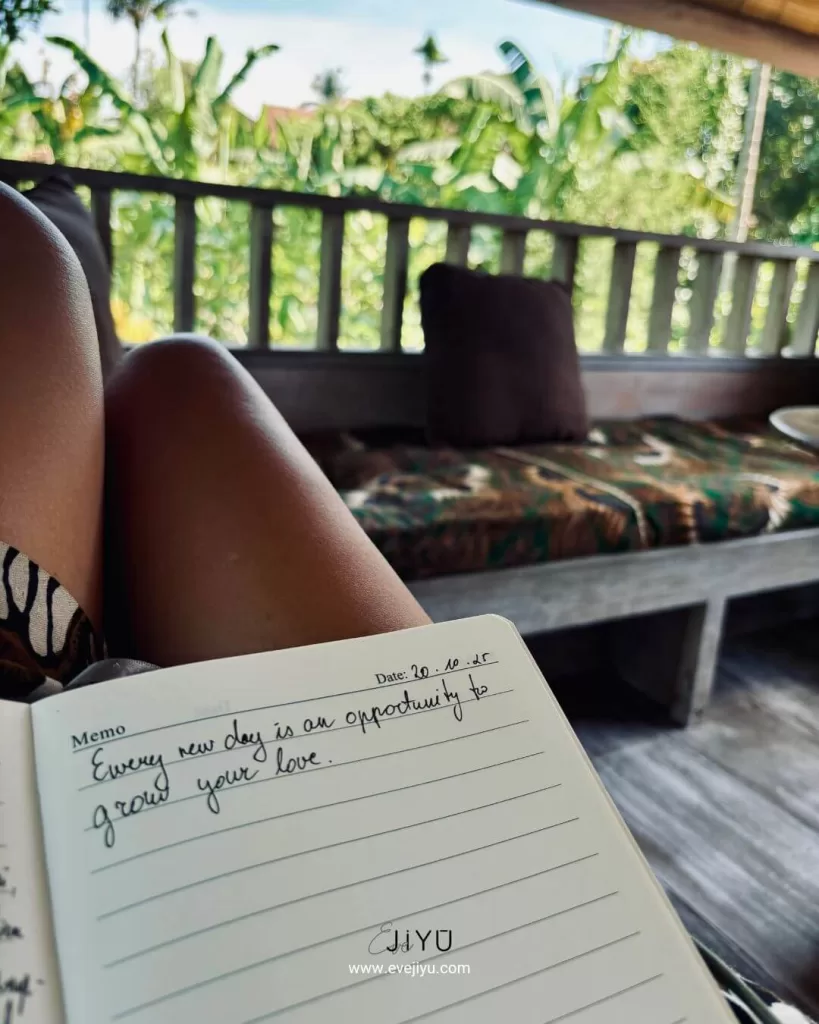 Date: 20.10.25
Memo
Every new day is an opportunity to
grow your love.
Eve JiYŪ
www.evejiyu.com